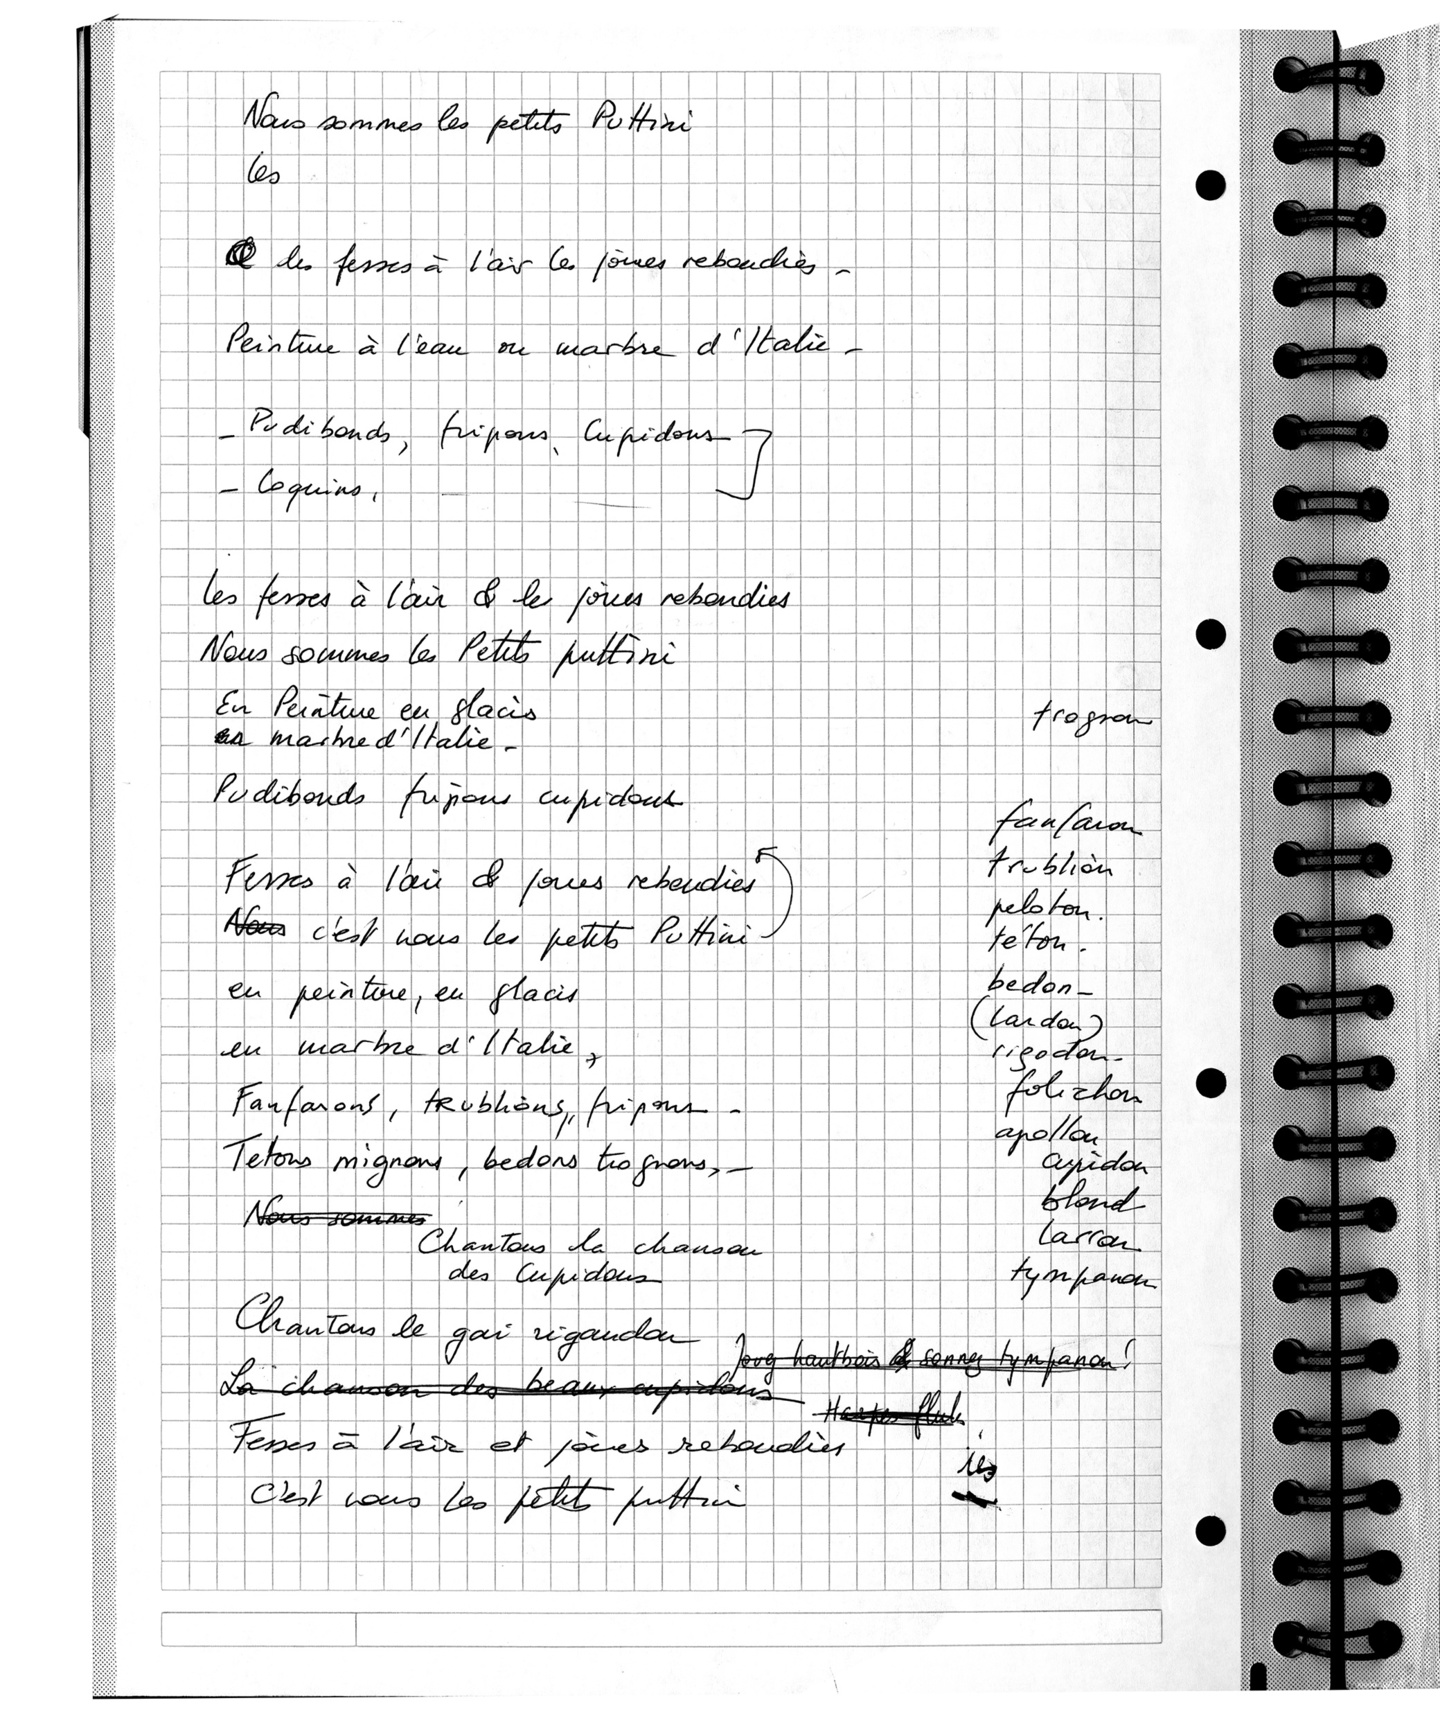 Nous sommes les petits Puttini
les
les fesses à l'air les joues rebondies -
Peinture à l'eau ou marbre d'Italie -
- Pudibonds, fripons, Cupidons
- Coquins,
les fesses à l'air & les joues rebondies
Nous sommes les Petits puttini
En Peinture en glacis
en marbre d'Italie -
Pudibonds fripons cupidons
Fesses à l'air & joues rebondies
Nous c'est nous les petits Puttini
en peinture, en glacis
en marbre d'Italie,
Fanfarons, trublions, fripons -
Tetons mignons, bedons trognons, -
Nous sommes
Chantons la chanson
des Cupidons
Chantons le gai rigaudon
Jouez hautbois & sonnez tympanon !
La chanson des beaux cupidons
Harpes flutes
Fesses à l'air et joues rebondies
c'est nous les petits puttini
trognon
fanfaron
trublion
peloton.
téton.
bedon -
(lardon)
rigodon -
folichon
apollon
cupidon
blond
larron
tympanon